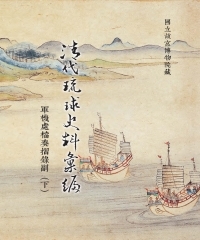 國立故宮博物院藏
清代琉球史料彙編
軍機處檔奏摺錄副（下）